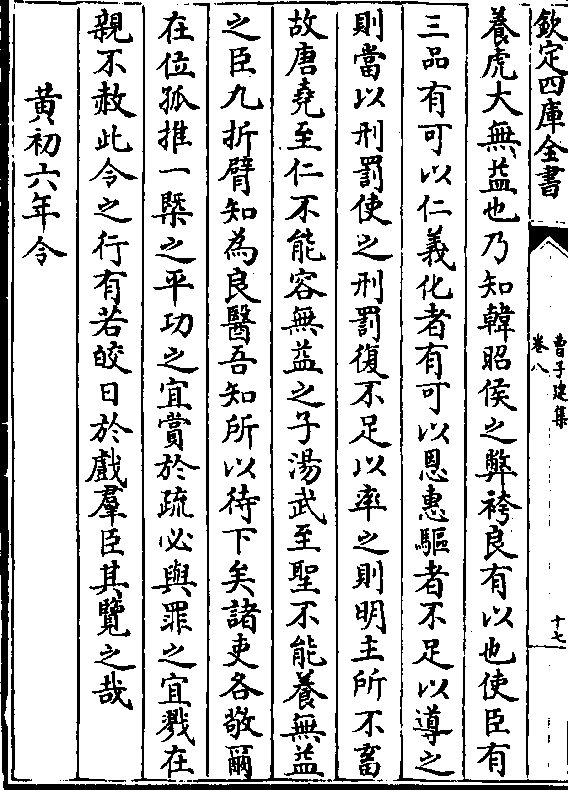 欽定四庫全書
曹子建集
卷八
十七
養虎大無益也乃知韓昭侯之弊袴良有以也使臣有
三品有可以仁義化者有可以恩惠驅者不足以導之
則當以刑罰使之刑罰復不足以率之則明主所不畜
故唐堯至仁不能容無益之子湯武至聖不能養無益
之臣九折臂知為良醫吾知所以待下矣諸吏各敬爾
在位孤推一槩之平功之宜賞於疏必與罪之宜戮在
親不赦此令之行有若皎日於戲羣臣其覽之哉
黃初六年令